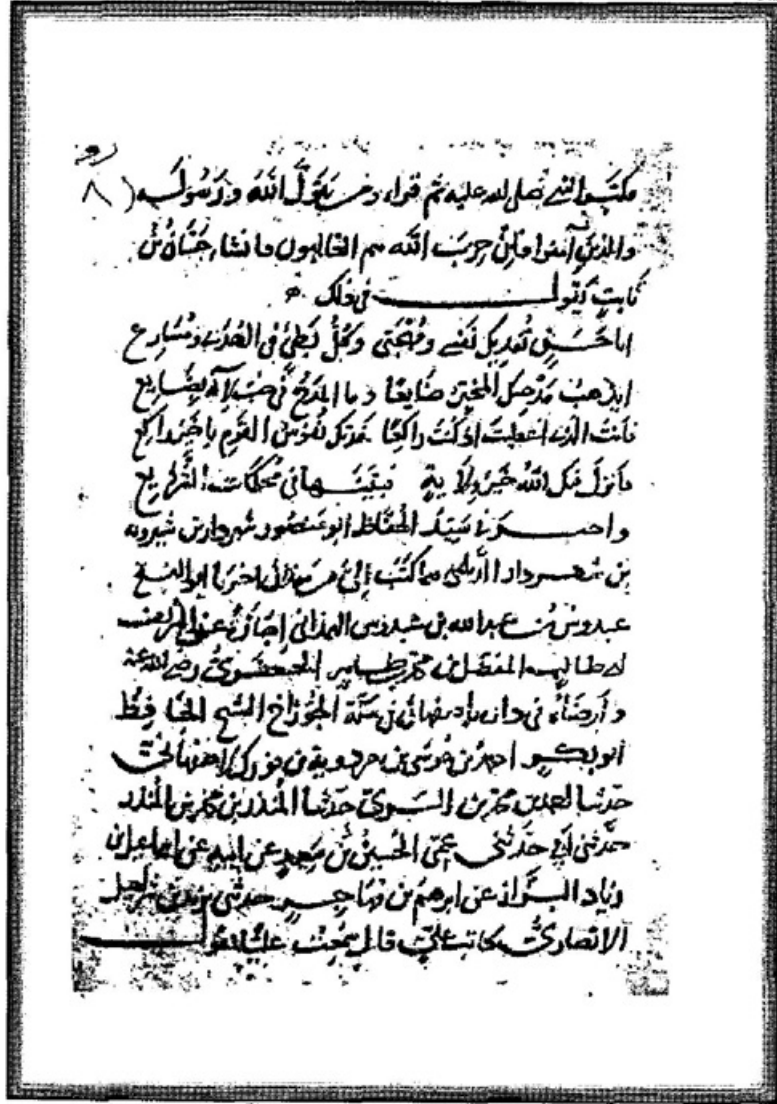 فكبر النبي صلى لله عليه ثم قراء ومن يتول الله ورسوله ٨
والذين آمنوا فان حزب الله هم الغالبون فانشاء حسّان بن
ثابت يقول في ذلك
ابا حسن تفديك نفسي ومهجتي وكل بطئ في الهدى ومسارع
ايذهب مدحيك المحبّر ضايعا وما المدح في جنب الآله بضايع
فانت الذي اعطيت اذ كنت راكعا فدتك نفوس القوم يا خير راكع
فانزل فيك الله خير ولاية فبيّنها في محكمات الشرايع
واخبرنا سيّد الحفاظ ابو منصور شهردار بن شيرويه
بن شهردار الديلمي فيما كتب إليّ من همذان اخبرنا ابو الفتح
عبدوس بن عبدالله بن عبدوس الهمذاني إجازة عن الشريف
ابي طالب المفضل بن محمد بن طاهر الجعفري رضي الله عنه
وأرضاه في داره باصفهان في سكة الخوز اخ الشيخ الحافظ
ابو بكر احمد بن موسى بن مردوية بن فورك الاصفهاني
حدثنا احمد بن محمد بن السري حدثنا المنذر بن محمد بن المنذر
حدثني أبي حدثني عمي الحسين بن سعيد عن ابيه عن اسماعيل بن
زياد البزاز عن ابرهيم بن مهاجر حدثني يزيد بن شراحيل
الانصاري كاتب علي قال سمعت عليا يقول